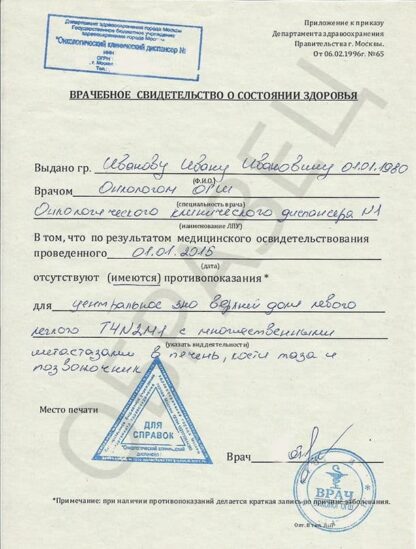 Департамент здравоохранения города Москвы
Государственное бюджетное учреждение
здравоохранения города Москвы
"Онкологический клинический диспансер №
ИНН
ОГРН
г. Москва
Тел.
Приложение к приказу
Департамента здравоохранения
Правительства г. Москвы.
От 06.02.1996г. №65
ВРАЧЕБНОЕ СВИДЕТЕЛЬСТВО О СОСТОЯНИИ ЗДОРОВЬЯ
Выдано гр. Иванову Ивану Ивановичу 01.01.1980
(Ф.И.О.)
Врачом Онкологом ОГШ
(специальность врача)
Онкологического клинического диспансера №1
(наименование ЛПУ)
В том, что по результатом медицинского освидетельствования
проведенного 01.01.2015
(дата)
отсутствуют (имеются) противопоказания *
для центральное зно верхней доли левого
легкого T4N2M1 с множественными
(указать вид деятельности)
метастазами в печень, кости таза и
позвоночник
Место печати
ДЛЯ
СПРАВОК
ОНКОЛОГИЧЕСКИЙ КЛИНИЧЕСКИЙ
ДИСПАНСЕР
Врач
ВРАЧ
*Примечание: при наличии противопоказаний делается краткая запись по причине заболевания.
ОБРАЗЕЦ